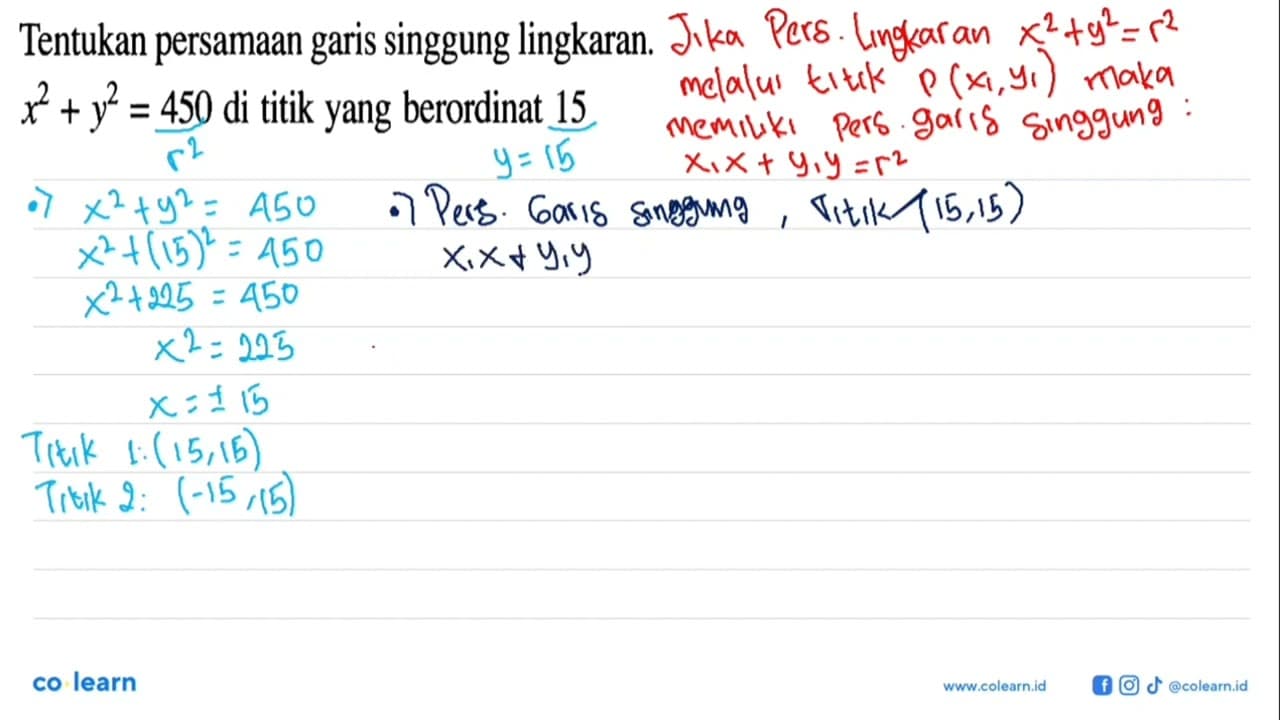 Tentukan persamaan garis singgung lingkaran.
x² + y² = 450 di titik yang berordinat 15
r²
y = 15
Jika Pers. Lingkaran x² + y² = r²
melalui titik P(x₁, y₁) maka
memiliki Pers. garis singgung :
x₁x + y₁y = r²
•) x² + y² = 450
x² + (15)² = 450
x² + 225 = 450
x² = 225
x = ± 15
Titik 1: (15, 15)
Titik 2: (-15, 15)
•) Pers. Garis singgung, Titik (15, 15)
x₁x + y₁y
co learn
www.colearn.id
@colearn.id